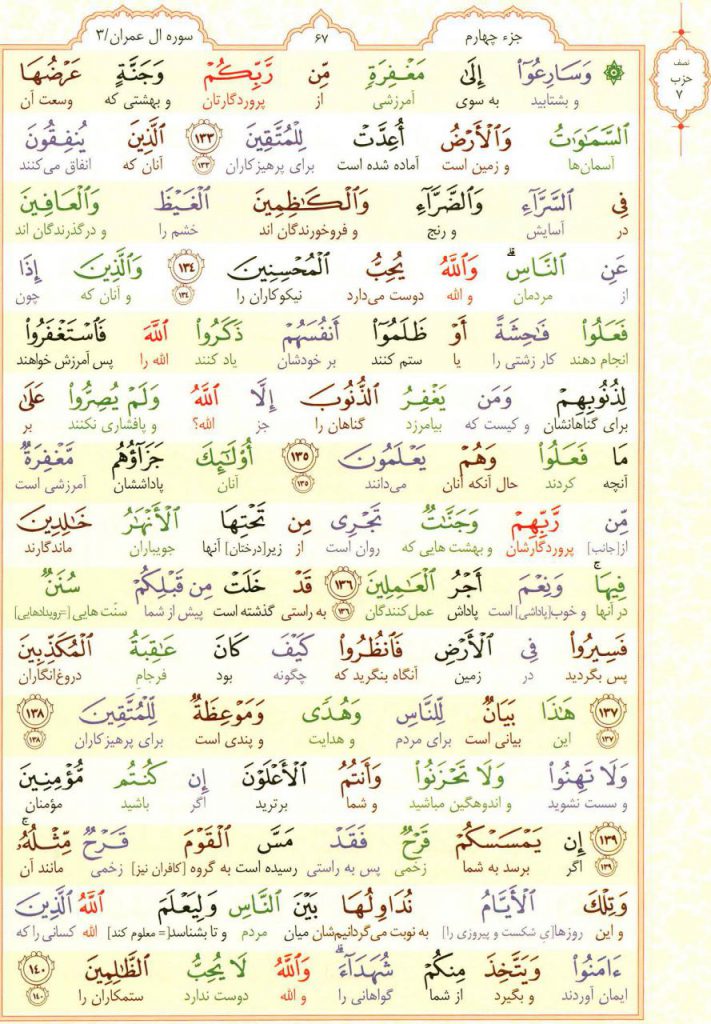 جزء چهارم ۶۷ سوره ال عمران/۳
نصف
حزب
۷
وَسَارِعُوٓا۟ إِلَىٰ مَغْفِرَةٍ مِّن رَّبِّكُمْ وَجَنَّةٍ عَرْضُهَا
و بشتابید به سوی آمرزشی از پروردگارتان و بهشتی که وسعت آن
ٱلسَّمَـٰوَٰتُ وَٱلْأَرْضُ أُعِدَّتْ لِلْمُتَّقِينَ ۱۳۳ ٱلَّذِينَ يُنفِقُونَ
آسمان‌ها و زمین است آماده شده است برای پرهیزکاران ۱۳۳ آنان که انفاق می‌کنند
فِى ٱلسَّرَّآءِ وَٱلضَّرَّآءِ وَٱلْكَـٰظِمِينَ ٱلْغَيْظَ وَٱلْعَافِينَ
در آسایش و رنج و فروخورندگان اند خشم را و درگذرندگان اند
عَنِ ٱلنَّاسِ ۗ وَٱللَّهُ يُحِبُّ ٱلْمُحْسِنِينَ ۱۳۴ وَٱلَّذِينَ إِذَا
از مردمان و الله دوست می‌دارد نیکوکاران را ۱۳۴ و آنان که چون
فَعَلُوا۟ فَـٰحِشَةً أَوْ ظَلَمُوٓا۟ أَنفُسَهُمْ ذَكَرُوا۟ ٱللَّهَ فَٱسْتَغْفَرُوا۟
انجام دهند کار زشتی را یا ستم کنند بر خودشان یاد کنند الله را پس آمرزش خواهند
لِذُنُوبِهِمْ وَمَن يَغْفِرُ ٱلذُّنُوبَ إِلَّا ٱللَّهُ وَلَمْ يُصِرُّوا۟ عَلَىٰ
برای گناهانشان و کیست که بیامرزد گناهان را جز الله؟ و پافشاری نکنند بر
مَا فَعَلُوا۟ وَهُمْ يَعْلَمُونَ ۱۳۵ أُو۟لَـٰٓئِكَ جَزَآؤُهُم مَّغْفِرَةٌ
آنچه کردند حال آنکه آنان می‌دانند ۱۳۵ آنان پاداششان آمرزشی است
مِّن رَّبِّهِمْ وَجَنَّـٰتٌ تَجْرِى مِن تَحْتِهَا ٱلْأَنْهَـٰرُ خَـٰلِدِينَ
از[جانب] پروردگارشان و بهشت هایی که روان است از زیر[درختان] آنها جویباران ماندگارند
فِيهَا ۚ وَنِعْمَ أَجْرُ ٱلْعَـٰمِلِينَ ۱۳۶ قَدْ خَلَتْ مِن قَبْلِكُمْ سُنَنٌ
در آنها و خوب[پاداشی] است پاداش عمل‌کنندگان ۱۳۶ به راستی گذشته است پیش از شما سنّت هایی [=رویدادهایی]
فَسِيرُوا۟ فِى ٱلْأَرْضِ فَٱنظُرُوا۟ كَيْفَ كَانَ عَـٰقِبَةُ ٱلْمُكَذِّبِينَ
پس بگردید در زمین آنگاه بنگرید که چگونه بود فرجام دروغ‌انگاران
۱۳۷ هَـٰذَا بَيَانٌ لِّلنَّاسِ وَهُدًى وَمَوْعِظَةٌ لِّلْمُتَّقِينَ ۱۳۸
۱۳۷ این بیانی است برای مردم و هدایت و پندی است برای پرهیزکاران ۱۳۸
وَلَا تَهِنُوا۟ وَلَا تَحْزَنُوا۟ وَأَنتُمُ ٱلْأَعْلَوْنَ إِن كُنتُم مُّؤْمِنِينَ
و سست نشوید و اندوهگین مباشید و شما برترید اگر باشید مؤمنان
۱۳۹ إِن يَمْسَسْكُمْ قَرْحٌ فَقَدْ مَسَّ ٱلْقَوْمَ قَرْحٌ مِّثْلُهُۥ ۚ
۱۳۹ اگر برسد به شما زخمی پس به راستی رسیده است به گروه [کافران نیز] زخمی مانند آن
وَتِلْكَ ٱلْأَيَّامُ نُدَاوِلُهَا بَيْنَ ٱلنَّاسِ وَلِيَعْلَمَ ٱللَّهُ ٱلَّذِينَ
و این روزها[ی شکست و پیروزی را] به نوبت می‌گردانیم‌شان میان مردم و تا بشناسد[= معلوم کند] الله کسانی را که
ءَامَنُوا۟ وَيَتَّخِذَ مِنكُمْ شُهَدَآءَ ۗ وَٱللَّهُ لَا يُحِبُّ ٱلظَّـٰلِمِينَ ۱۴۰
ایمان آوردند و بگیرد از شما گواهانی را و الله دوست ندارد ستمکاران را ۱۴۰